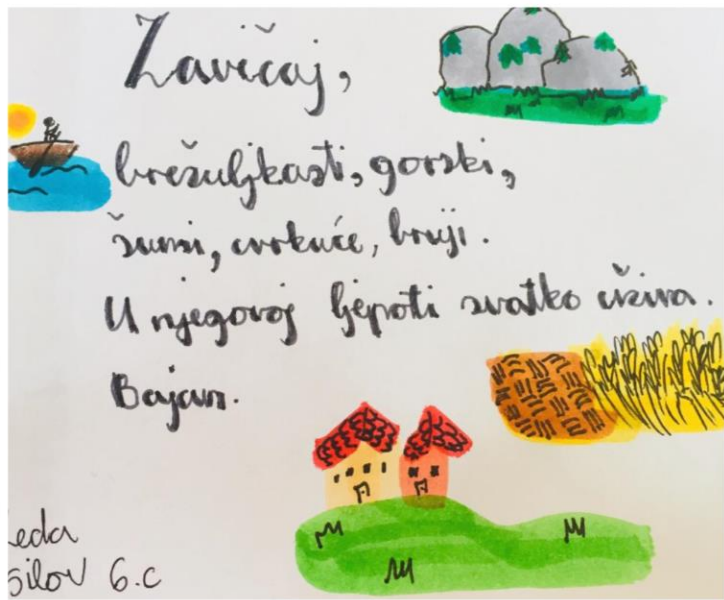 Zavičaj,
brežuljkasti, gorski,
šumi, cvrkuće, bruji.
U njegovoj ljepoti svatko uživa.
Bajan.
eda
silov 6.c